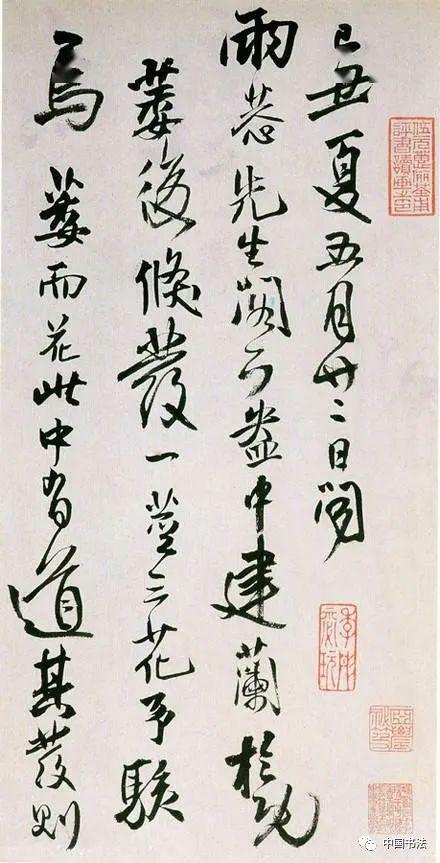 己丑夏五月廿二日聞
雨先生閣下盎中建蘭於既
萎後倏發一莖三花予駭
焉萎而花此中有道其發則
中国书法